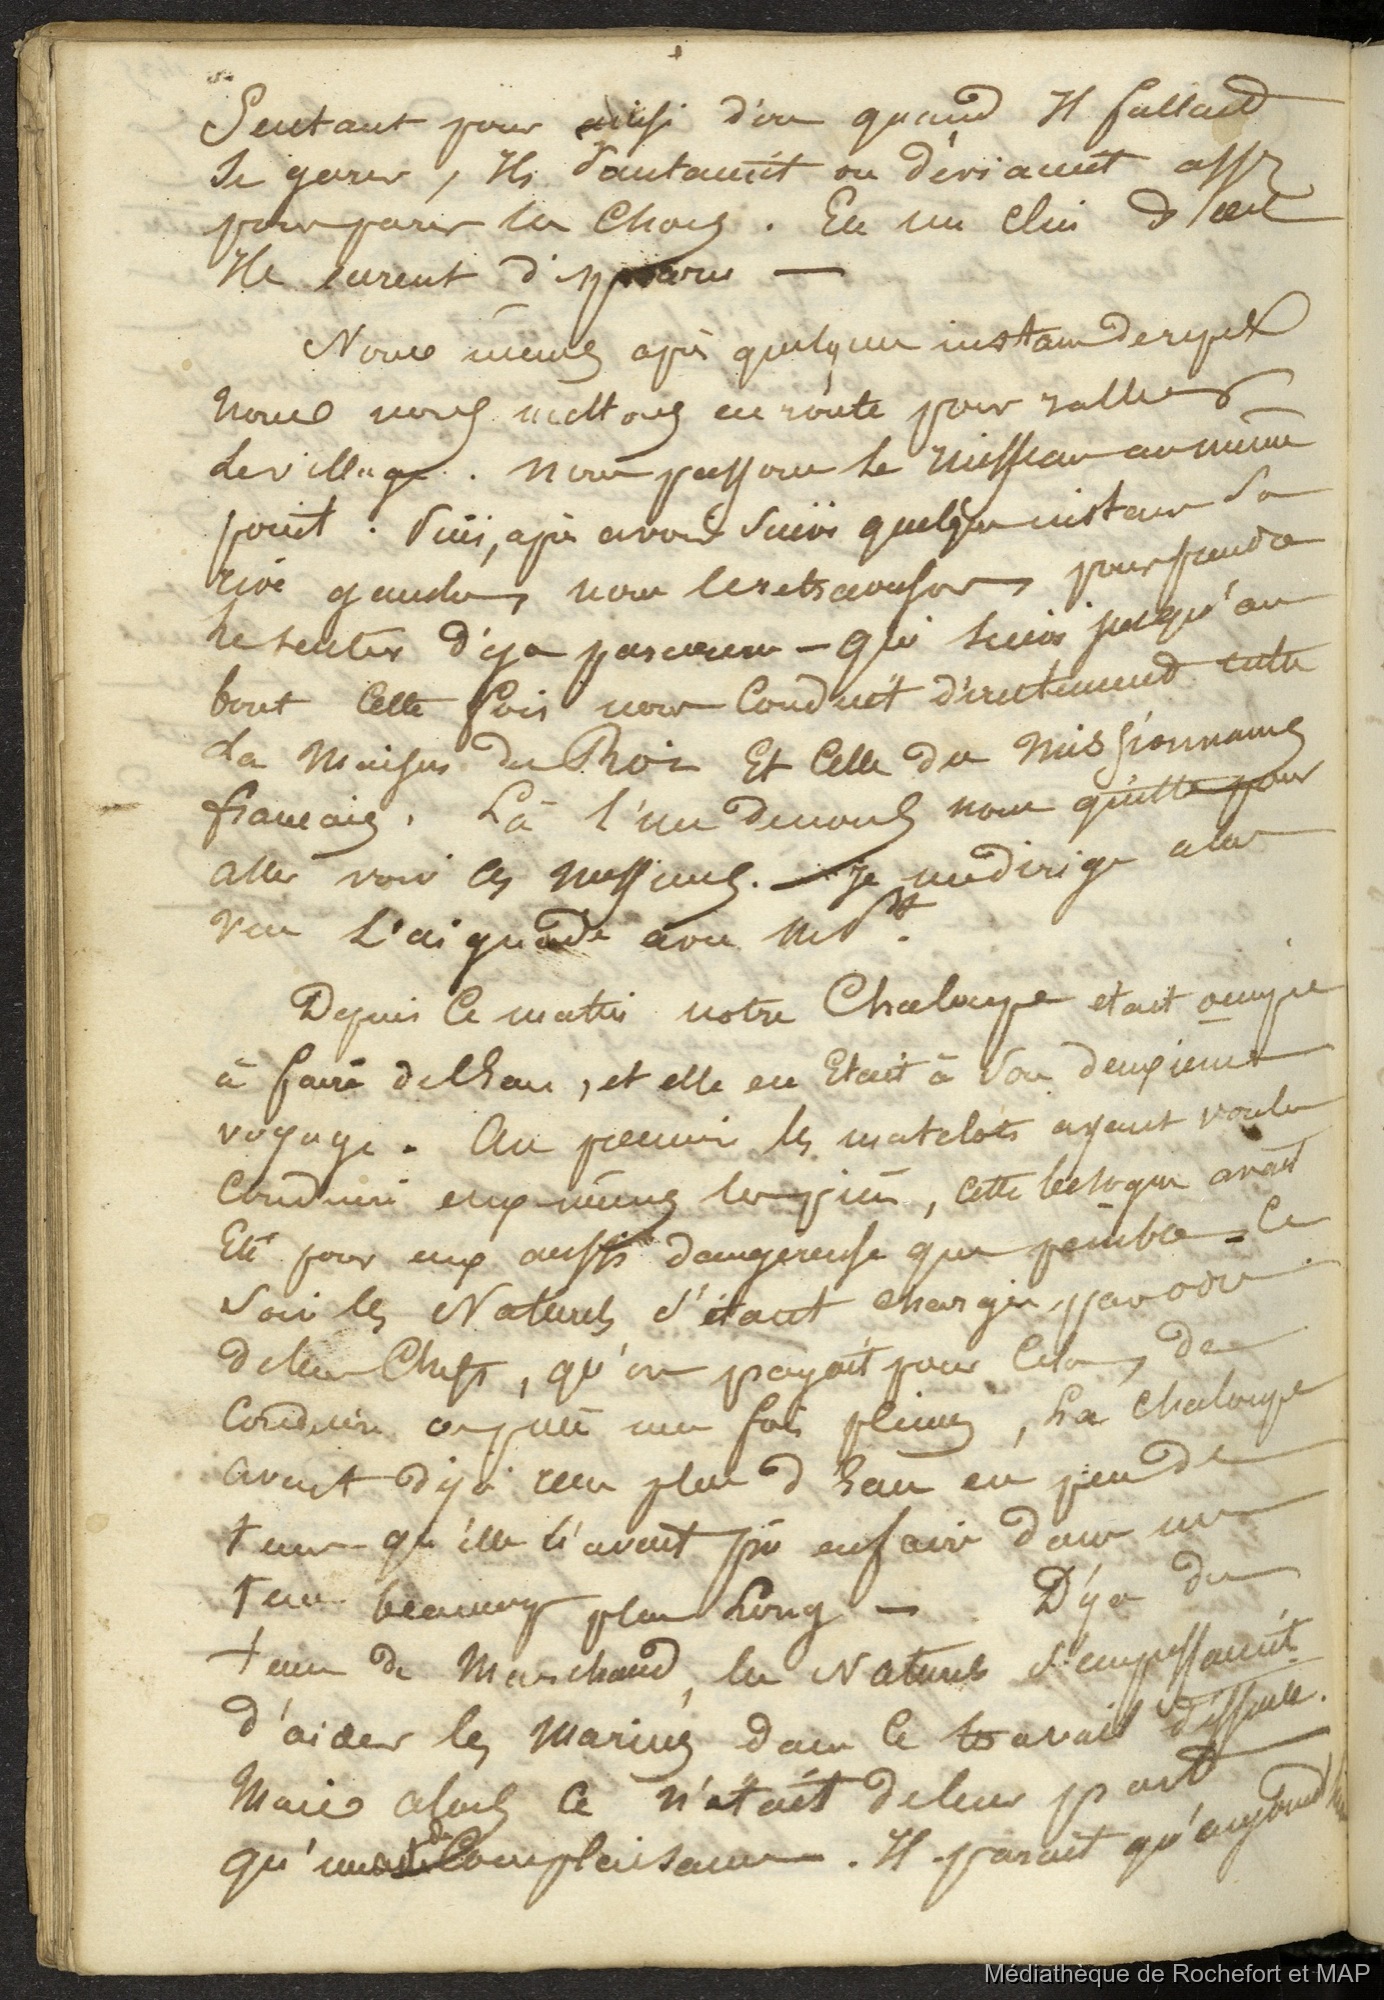 Sentant pour ainsi d'ire quand Il fallait
Se garer, Ils sautaient ou déviaient assez
pour parer les Chocs. En un clin d'œil
Ils eurent disparus —
Nous mêmes après quelques instans de repos
nous nous mettons en route pour rallier
le village. nous passons le ruisseau au même
point. Puis, après avoir suivi quelques instans sa
rive gauche, nous le retraversons, pour prendre
le sentier déja parcouru — qui suivi jusqu'au
bout Cette fois nous Conduit directement entre
La Maison du Roi Et Celle des Missionnaires
français. Là l'un de nous nous quitte pour
aller voir ces messieurs. — Je me dirige alors
vers L'aiguade avec
Depuis Ce matin notre Chaloupe etait occupée
à faire de l'Eau, et elle en Etait à son deuxieme
voyage. Au premier les matelots ayant voulu
Conduire eux-mêmes les pièces, cette besogne avait
Eté pour eux aussi dangereuse que penible. Ce
soir les Naturels s'étant chargés, par ordre
de leur Chefs, qu'on payait pour Cela, de
Conduire ces pièces une fois pleines, La Chaloupe
avait déjà reçu plus d'Eau en peu de
tems qu'elle n'avait pu en faire dans un
tems beaucoup plus Long — . Déja du
tems de Marchand, les Naturels s'empressaient
d'aider les Marins dans Ce travail difficile.
Mais alors Ce n'était de leur part
qu'un acte de Complaisance. Il parait qu'aujourd'hui
Médiathèque de Rochefort et MAP